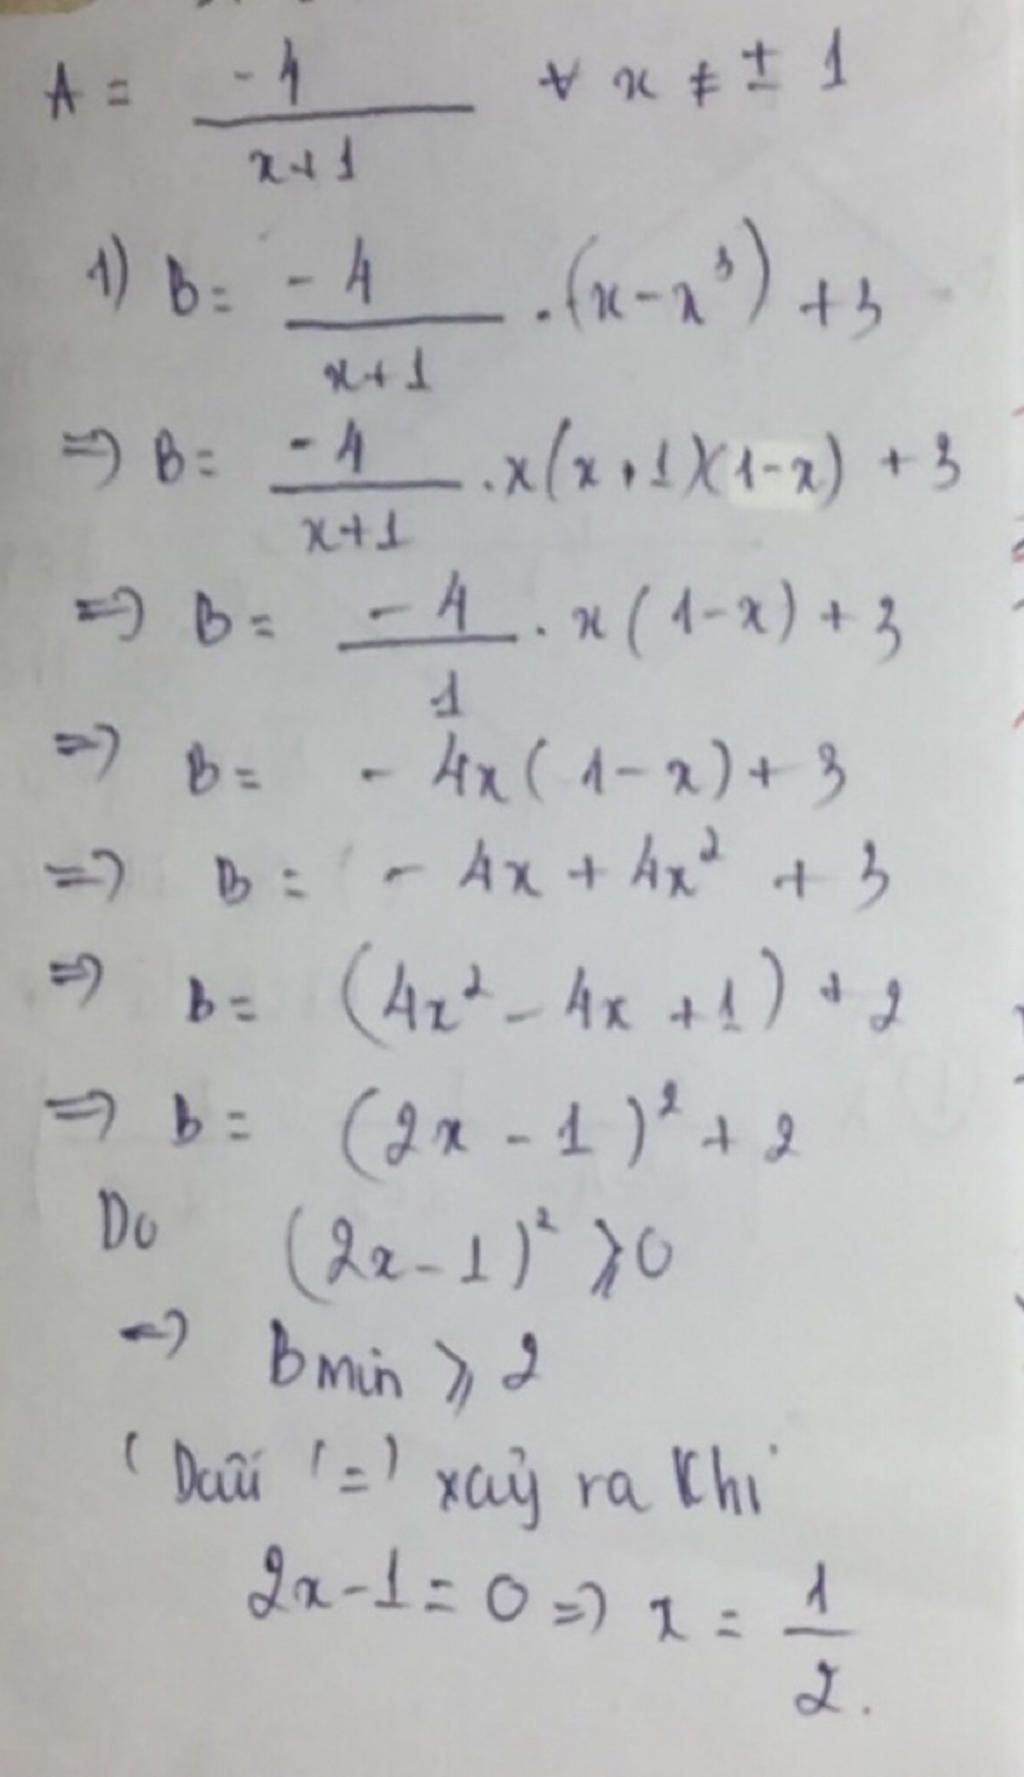 A = -4/(x+1) ∀ x ≠ ± 1
1) B = -4/(x+1) . (x - x³) + 3
=> B = -4/(x+1) . x(x+1)(1-x) + 3
=> B = -4/1 . x(1-x) + 3
=> B = - 4x(1-x) + 3
=> B = - 4x + 4x² + 3
=> B = (4x² - 4x + 1) + 2
=> B = (2x - 1)² + 2
Do (2x - 1)² ⩾ 0
=> B min ⩾ 2
( Dấu '=' xảy ra khi
2x - 1 = 0 => x = 1/2.